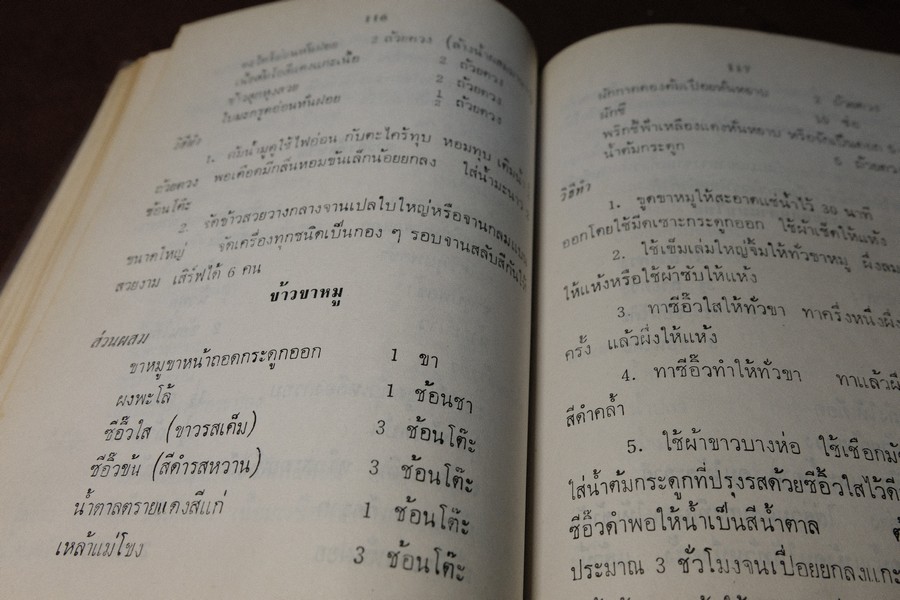 116
2 ถ้วยตวง
2 ถ้วยตวง
ข้าวสุกหุงสวย 2 ถ้วยตวง
ใบมะกรูดอ่อนหั่นฝอย 1/2 ถ้วยตวง
วิธีทำ
1. ต้มน้ำมูดูใช้ไฟอ่อน กับตะไคร้ทุบ หอมทุบ เติมน้ำ
ถ้วยตวง พอเดือดมีกลิ่นหอมข้นเล็กน้อยยกลง ใส่น้ำมะนาว
ช้อนโต๊ะ
2. จัดข้าวสวยวางกลางจานเปลใบใหญ่หรือจานกลมแบน
ขนาดใหญ่ จัดเครื่องทุกชนิดเป็นกอง ๆ รอบจานสลับสีกันให้
สวยงาม เสิร์ฟได้ 6 คน
ข้าวขาหมู
ส่วนผสม
ขาหมูขาหน้าถอดกระดูกออก 1 ขา
ผงพะโล้ 1 ช้อนชา
ซีอิ๊วใส (ขาวรสเค็ม) 3 ช้อนโต๊ะ
ซีอิ๊วข้น (สีดำรสหวาน) 3 ช้อนโต๊ะ
น้ำตาลทรายแดงสีแก่ 1 ช้อนโต๊ะ
เหล้าแม่โขง 3 ช้อนโต๊ะ
117
ผักกาดดองต้มเปื่อยหั่นหยาบ 2 ถ้วยตวง
ผักชี 10 ช่อ
พริกชี้ฟ้าเหลืองแดงหั่นหยาบ หรือจักเป็นดอก
น้ำต้มกระดูก 5 ถ้วยตวง
วิธีทำ
1. ขูดขาหมูให้สะอาดแช่น้ำไว้ 30 นาที
ออกโดยใช้มีดเซาะกระดูกออก ใช้ผ้าเช็ดให้แห้ง
2. ใช้เข็มเล่มใหญ่จิ้มให้ทั่วขาหมู ผึ่งลม
ให้แห้งหรือใช้ผ้าซับให้แห้ง
3. ทาซีอิ๊วใสให้ทั่วขา ทาครึ่งหนึ่งผึ่ง
ครั้ง แล้วผึ่งให้แห้ง
4. ทาซีอิ๊วดำให้ทั่วขา ทาแล้วผึ่ง
สีดำคล้ำ
5. ใช้ผ้าขาวบางห่อ ใช้เชือกมัด
ใส่น้ำต้มกระดูกที่ปรุงรสด้วยซีอิ๊วใสไว้ดี
ซีอิ๊วดำพอให้น้ำเป็นสีน้ำตาล
ประมาณ 3 ชั่วโมงจนเปื่อยยกลงแกะ